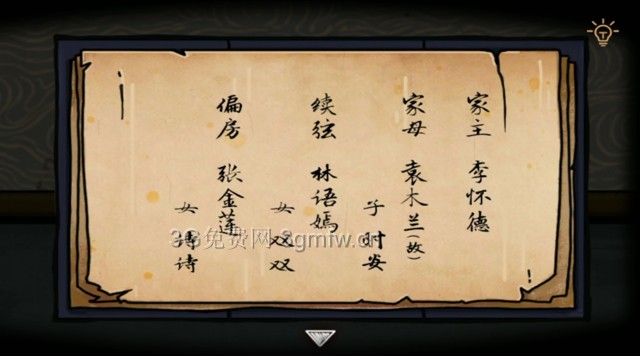 家主 李怀德
家母 袁木兰(故)
子 时安
续弦 林语嫣
女 双双
偏房 张金莲
女 诗诗
3G免费网 3gmfw.cn